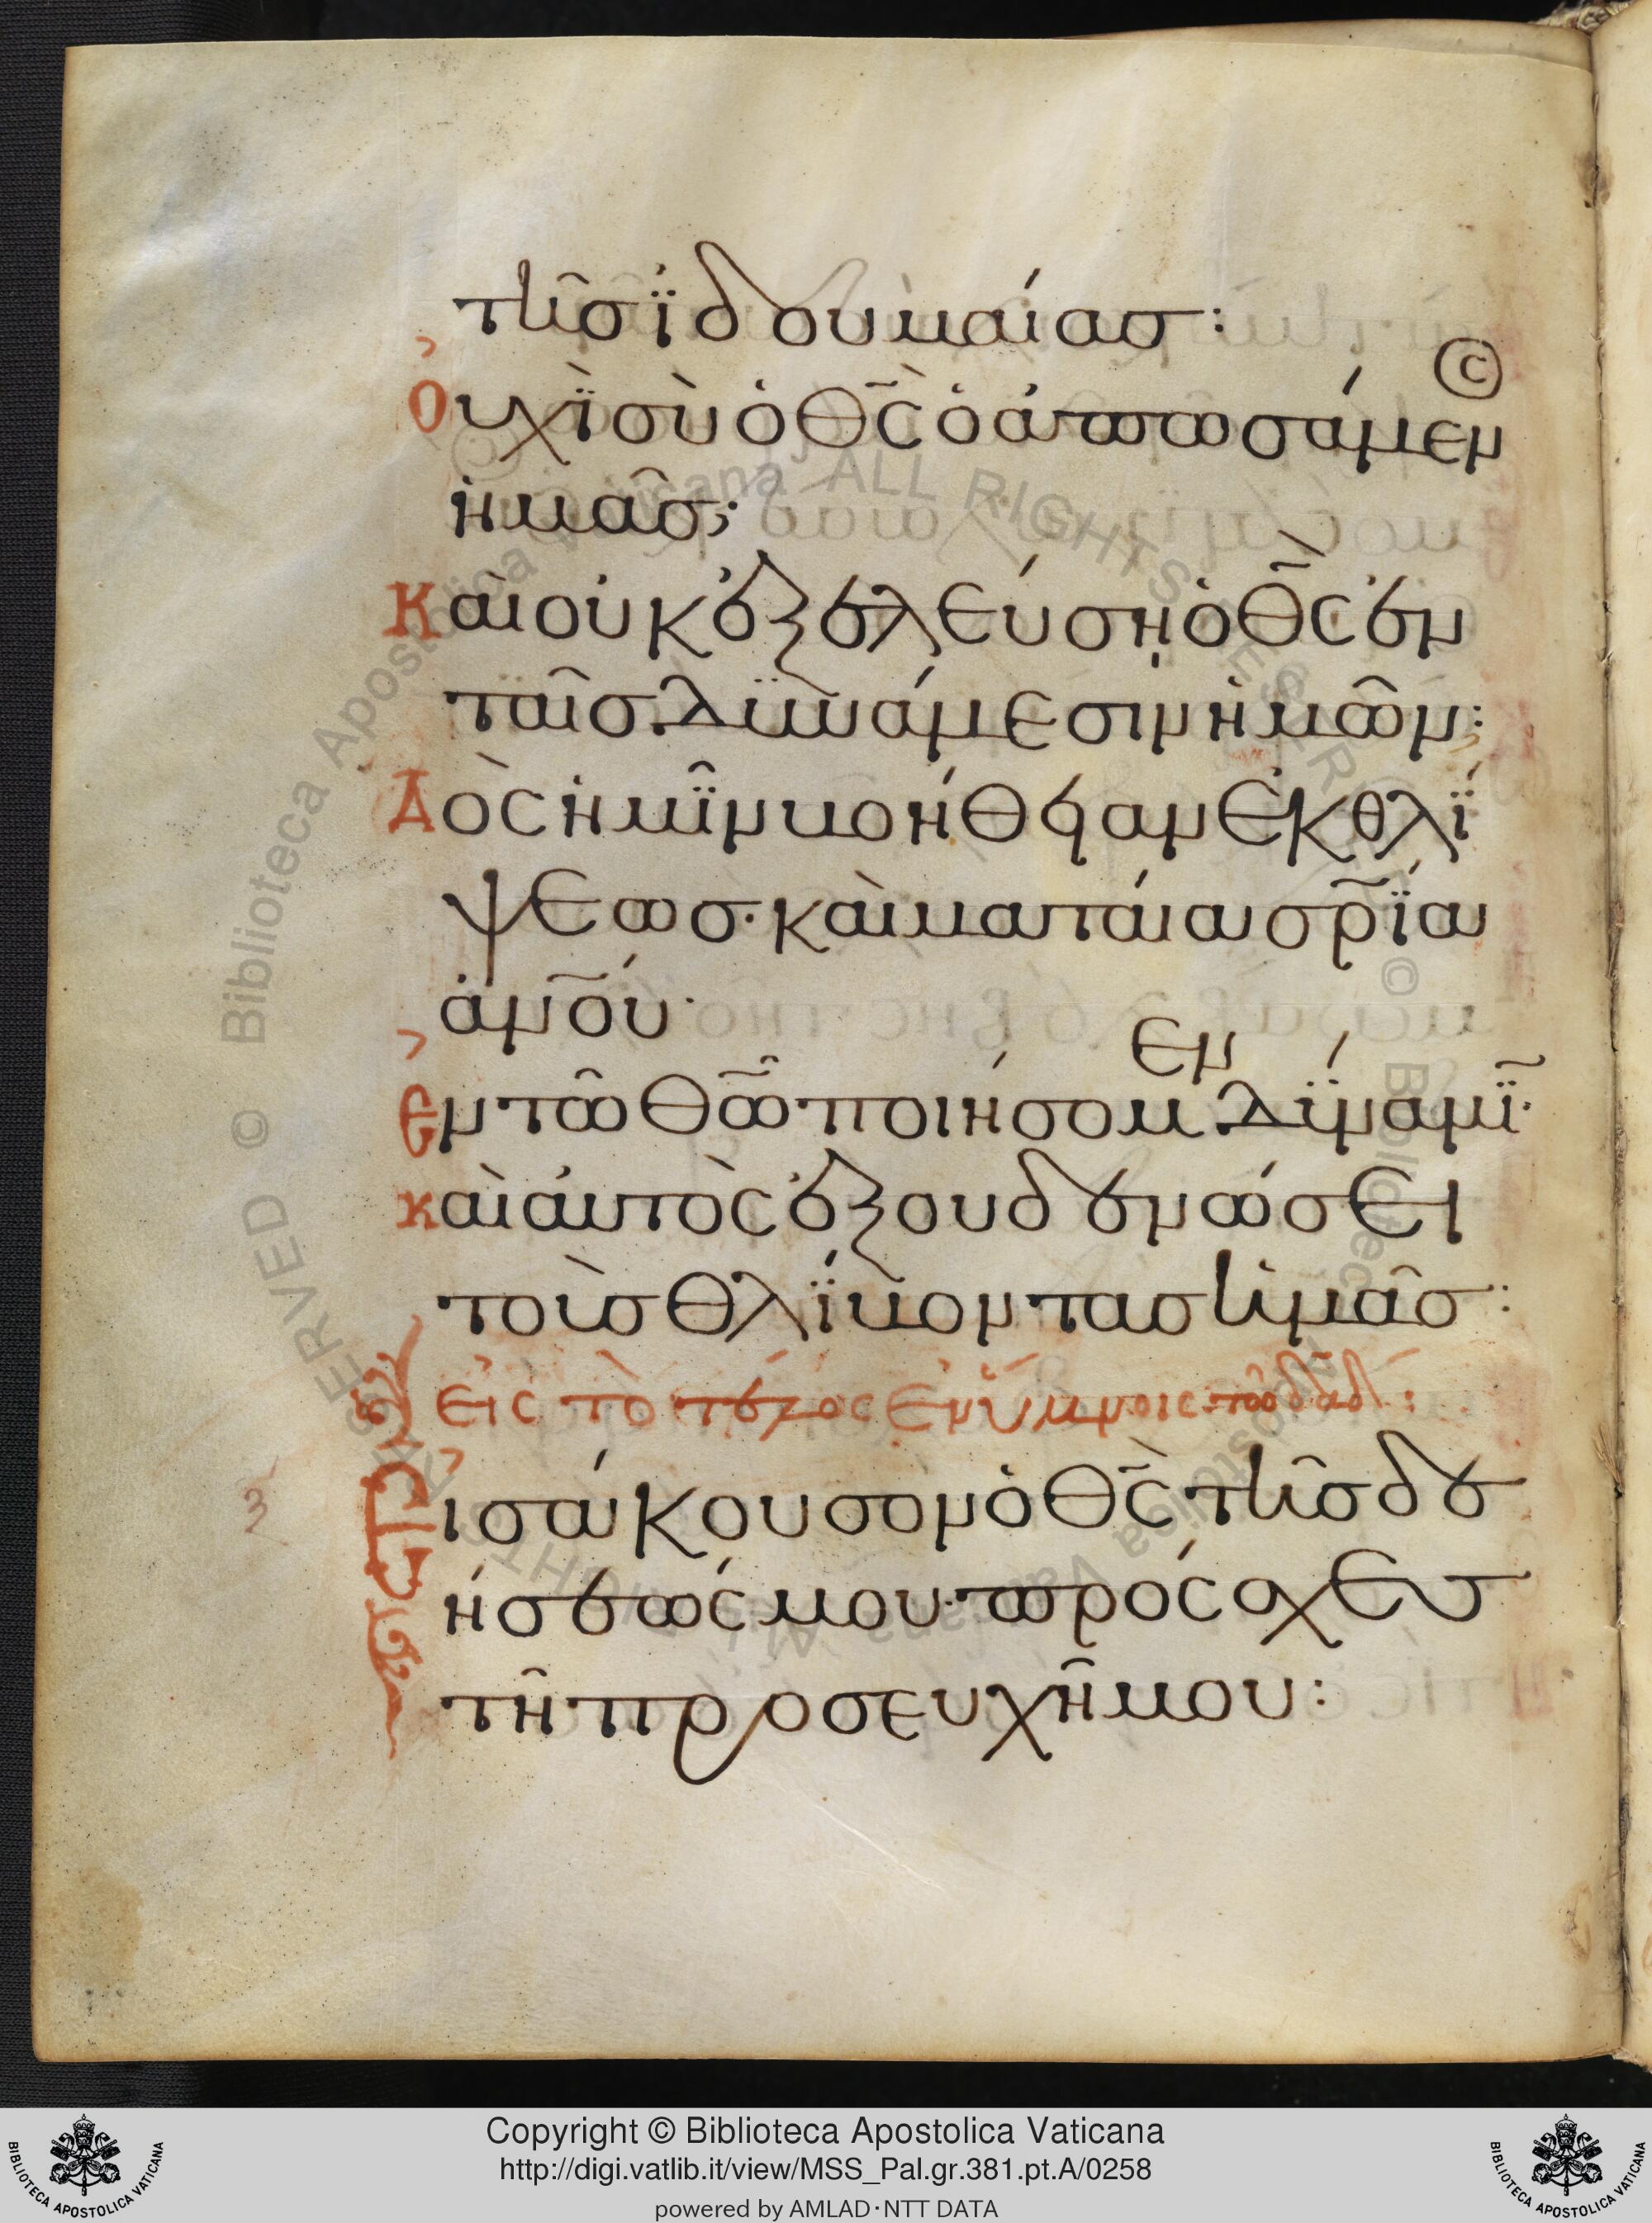 τῆς ϊδουμαίας:
Οὐχὶ̈ σὺ ὁ θ̅ς̅ ὁ ἀπωσάμεν
ος
ἡμᾶς;
Καὶ οὐκ ἐξελεύσῃ ὁ θ̅ς̅ ἐν
ταῖς δυνάμεσιν ἡμῶν:
Δὸς ἡμῖ̈ν βοήθειαν ἐκ θλί̈
ψεως· καὶ ματαία σ̅ρ̅ί̈α
ἀν̅ο̅υ̅·
Ἐν τῶ θ̅ῶ̅ ποιήσομεν δύναμϊ̅·
καὶ αὐτὸς ἐξουδενώσει
τοὺς θλίβοντας ἡμᾶς:
εἰς τὸ τέλος ἐν ὕμνοις τῶ δ̅α̅δ̅:
Εἰσάκουσον ὁ θ̅ς̅ τῆς δε
ήσεώς μου· πρόσχες
τῆ προσευχῆ μου:
Copyright © Biblioteca Apostolica Vaticana
http://digi.vatlib.it/view/MSS_Pal.gr.381.pt.A/0258
powered by AMLAD·NTT DATA
BIBLIOTECA APOSTOLICA VATICANA
BIBLIOTECA APOSTOLICA VATICANA